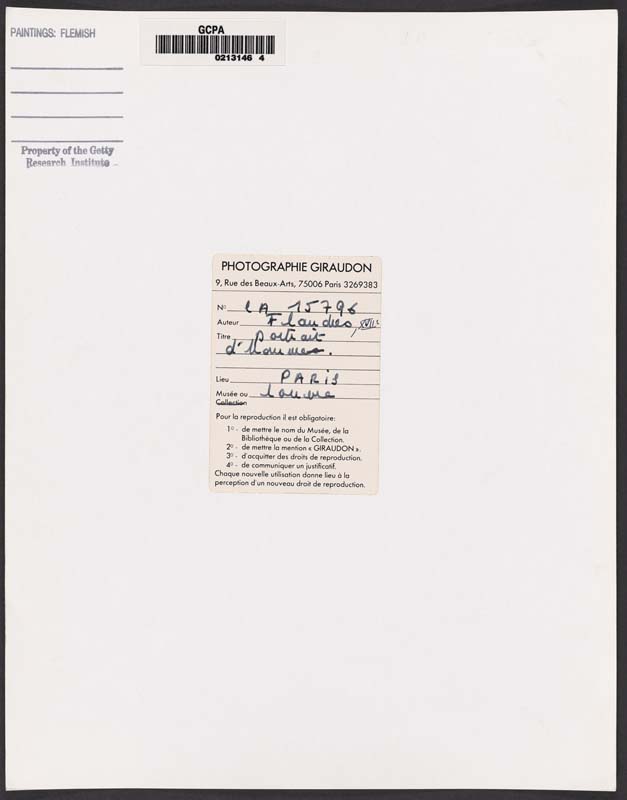 PAINTINGS: FLEMISH
GCPA
0213146 4
Property of the Getty
Research Institute
PHOTOGRAPHIE GIRAUDON
9, Rue des Beaux-Arts, 75006 Paris 3269383
No LA 15796
Auteur Flandres, XVIIe
Titre Portrait
d'hommes.
Lieu PARIS
Musée ou Louvre
Collection
Pour la reproduction il est obligatoire:
1o - de mettre le nom du Musée, de la
Bibliothèque ou de la Collection.
2o - de mettre la mention « GIRAUDON ».
3o - d'acquitter des droits de reproduction.
4o - de communiquer un justificatif.
Chaque nouvelle utilisation donne lieu à la
perception d'un nouveau droit de reproduction.